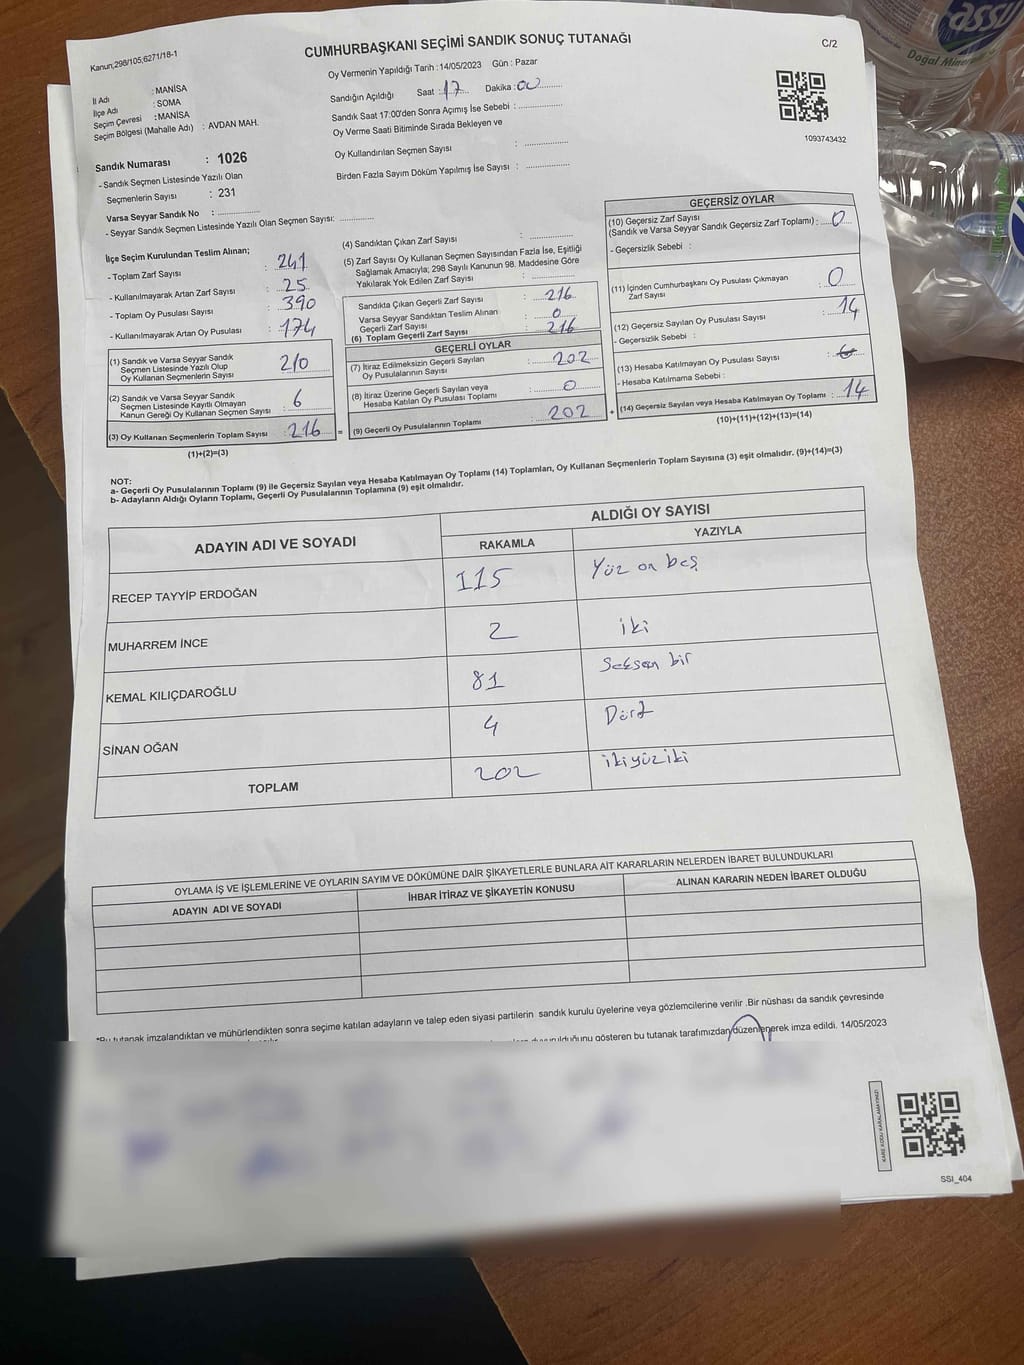 Kanun,298/105,6271/18-1
CUMHURBAŞKANI SEÇİMİ SANDIK SONUÇ TUTANAĞI
C/2
Oy Vermenin Yapıldığı Tarih :14/05/2023 Gün : Pazar
İl Adı : MANİSA
İlçe Adı : SOMA
Seçim Çevresi : MANİSA
Seçim Bölgesi (Mahalle Adı) : AVDAN MAH.
Sandığın Açıldığı Saat : 17 Dakika : 00
Sandık Saat 17:00'den Sonra Açımış İse Sebebi :
Oy Verme Saati Bitiminde Sırada Bekleyen ve
Oy Kullandırılan Seçmen Sayısı :
Birden Fazla Sayım Döküm Yapılmış İse Sayısı :
1093743432
Sandık Numarası : 1026
- Sandık Seçmen Listesinde Yazılı Olan
Seçmenlerin Sayısı : 231
Varsa Seyyar Sandık No :
- Seyyar Sandık Seçmen Listesinde Yazılı Olan Seçmen Sayısı:
İlçe Seçim Kurulundan Teslim Alınan;
- Toplam Zarf Sayısı : 241
- Kullanılmayarak Artan Zarf Sayısı : 25
- Toplam Oy Pusulası Sayısı : 390
- Kullanılmayarak Artan Oy Pusulası : 174
(1) Sandık ve Varsa Seyyar Sandık
Seçmen Listesinde Yazılı Olup
Oy Kullanan Seçmenlerin Sayısı : 210
(2) Sandık ve Varsa Seyyar Sandık
Seçmen Listesinde Kayıtlı Olmayan
Kanun Gereği Oy Kullanan Seçmen Sayısı : 6
(3) Oy Kullanan Seçmenlerin Toplam Sayısı : 216 =
(1)+(2)=(3)
(4) Sandıktan Çıkan Zarf Sayısı :
(5) Zarf Sayısı Oy Kullanan Seçmen Sayısından Fazla İse, Eşitliği
Sağlamak Amacıyla; 298 Sayılı Kanunun 98. Maddesine Göre
Yakılarak Yok Edilen Zarf Sayısı :
Sandıkta Çıkan Geçerli Zarf Sayısı : 216
Varsa Seyyar Sandıktan Teslim Alınan
Geçerli Zarf Sayısı : 0
(6) Toplam Geçerli Zarf Sayısı : 216
GEÇERLİ OYLAR
(7) İtiraz Edilmeksizin Geçerli Sayılan
Oy Pusulalarının Sayısı : 202
(8) İtiraz Üzerine Geçerli Sayılan veya
Hesaba Katılan Oy Pusulası Toplamı : 0
(9) Geçerli Oy Pusulalarının Toplamı : 202 +
GEÇERSİZ OYLAR
(10) Geçersiz Zarf Sayısı
(Sandık ve Varsa Seyyar Sandık Geçersiz Zarf Toplamı) : 0
- Geçersizlik Sebebi :
(11) İçinden Cumhurbaşkanı Oy Pusulası Çıkmayan
Zarf Sayısı : 0
(12) Geçersiz Sayılan Oy Pusulası Sayısı : 14
- Geçersizlik Sebebi :
(13) Hesaba Katılmayan Oy Pusulası Sayısı :
- Hesaba Katılmama Sebebi :
(14) Geçersiz Sayılan veya Hesaba Katılmayan Oy Toplamı : 14
(10)+(11)+(12)+(13)=(14)
NOT:
a- Geçerli Oy Pusulalarının Toplamı (9) ile Geçersiz Sayılan veya Hesaba Katılmayan Oy Toplamı (14) Toplamları, Oy Kullanan Seçmenlerin Toplam Sayısına (3) eşit olmalıdır. (9)+(14)=(3)
b- Adayların Aldığı Oyların Toplamı, Geçerli Oy Pusulalarının Toplamına (9) eşit olmalıdır.
ADAYIN ADI VE SOYADI
ALDIĞI OY SAYISI
RAKAMLA YAZIYLA
RECEP TAYYİP ERDOĞAN 115 Yüz on beş
MUHARREM İNCE 2 iki
KEMAL KILIÇDAROĞLU 81 Seksen bir
SİNAN OĞAN 4 Dört
TOPLAM 202 ikiyüziki
OYLAMA İŞ VE İŞLEMLERİNE VE OYLARIN SAYIM VE DÖKÜMÜNE DAİR ŞİKAYETLERLE BUNLARA AİT KARARLARIN NELERDEN İBARET BULUNDUKLARI
ADAYIN ADI VE SOYADI İHBAR İTİRAZ VE ŞİKAYETİN KONUSU ALINAN KARARIN NEDEN İBARET OLDUĞU
*Bu tutanak imzalandıktan ve mühürlendikten sonra seçime katılan adayların ve talep eden siyasi partilerin sandık kurulu üyelerine veya gözlemcilerine verilir .Bir nüshası da sandık çevresinde
duyurulduğunu gösteren bu tutanak tarafımızdan düzenlenerek imza edildi. 14/05/2023
KARE KODU KARALAMAYINIZ!
SSI_404
assu
Doğal